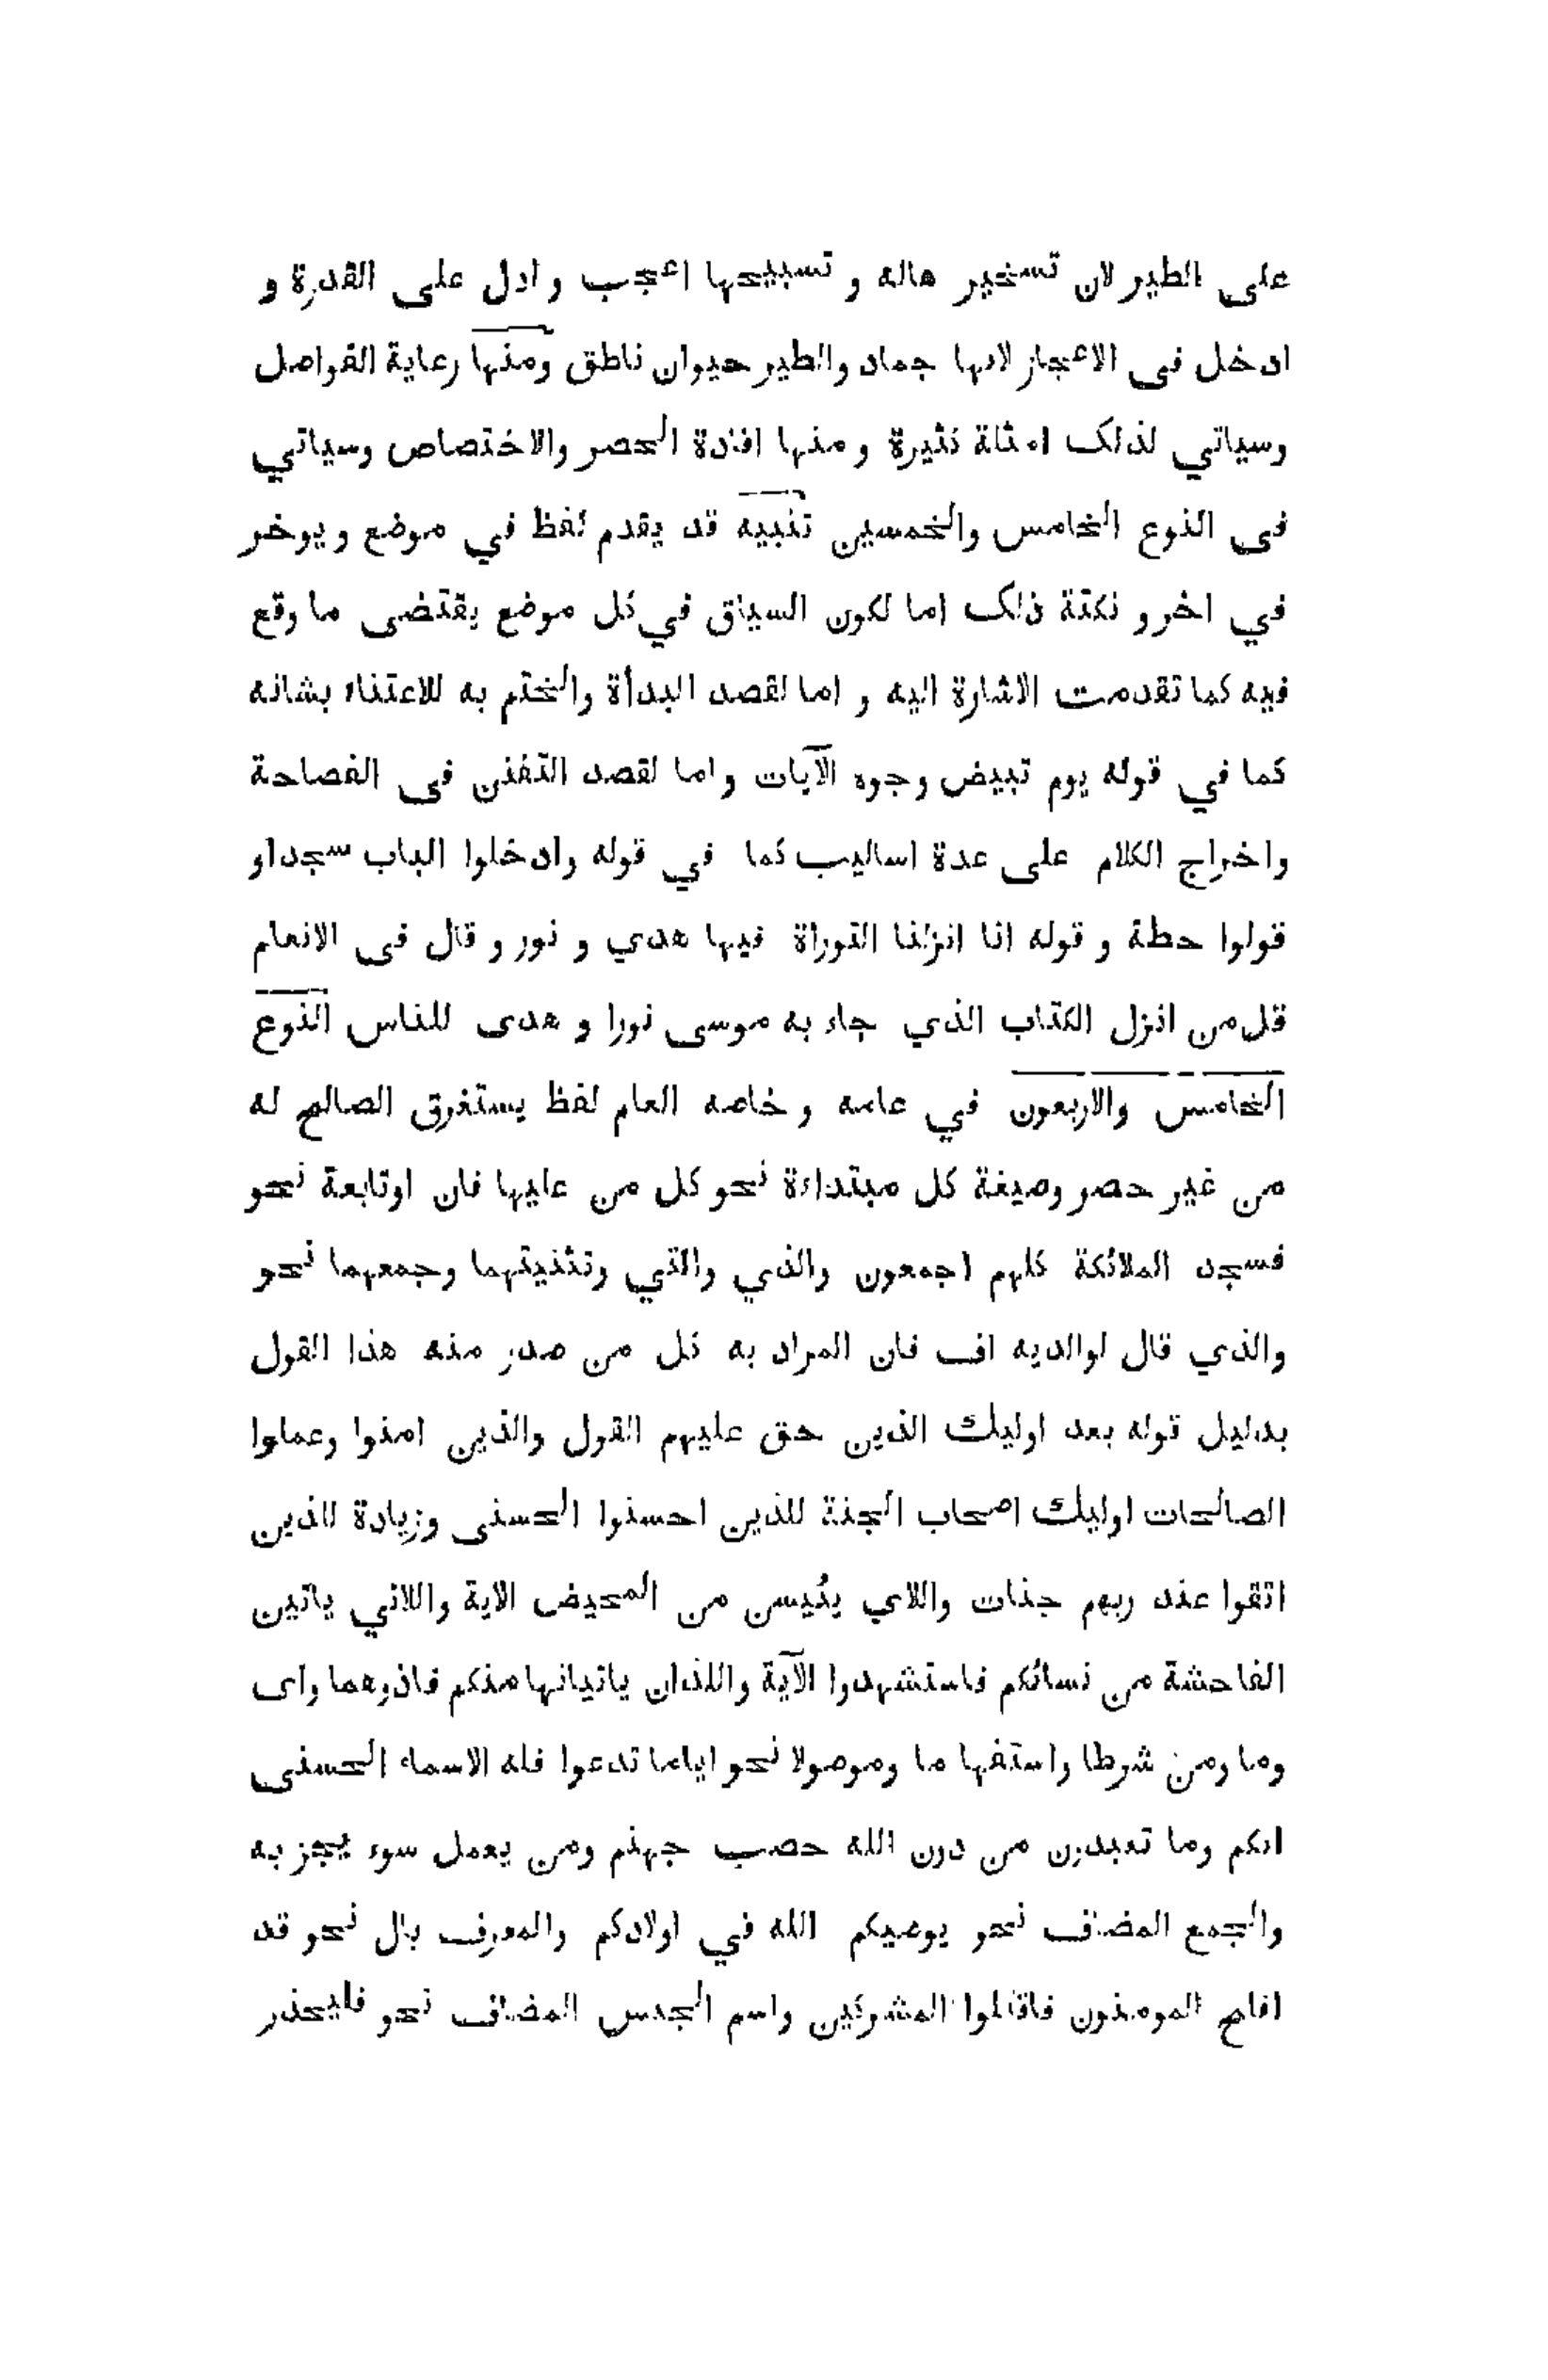 على الطير لان تسخير هاله و تسبيحها اعجب و ادل على القدرة و
ادخل فى الاعجاز لانها جماد والطير حيوان ناطق ومنها رعاية الفواصل
وسياتي لذلك امثلة كثيرة و منها افادة الحصر والاختصاص وسياتي
فى النوع الخامس والخمسين تنبيه قد يقدم لفظ في موضع و يوخر
في اخر و نكتة ذلك اما لكون السياق في كل موضع يقتضى ما وقع
فيه كما تقدمت الاشارة اليه و اما لقصد البدأة والختم به للاعتناء بشانه
كما في قوله يوم تبيض وجوه الآيات و اما لقصد التفنن فى الفصاحة
واخراج الكلام على عدة اساليب كما في قوله وادخلوا الباب سجدا و
قولوا حطة و قوله انا انزلنا التوراة فيها هدي و نور و قال فى الانعام
قل من انزل الكتاب الذي جاء به موسى نورا و هدى للناس النوع
الخامس والاربعون في عامه و خاصه العام لفظ يستغرق الصالح له
من غير حصر وصيغة كل مبتداءة نحو كل من عليها فان اوتابعة نحو
فسجد الملائكة كلهم اجمعون والذي والتي وتثنيتهما وجمعهما نحو
والذي قال لوالديه اف فان المراد به كل من صدر منه هذا القول
بدليل قوله بعد اوليك الذين حق عليهم القول والذين امنوا وعملوا
الصالحات اوليك اصحاب الجنة للذين احسنوا الحسنى وزيادة للذين
اتقوا عند ربهم جنات واللاي يئيسن من المحيض الاية واللاتي ياتين
الفاحشة من نسائكم فاستشهدوا الآية واللذان ياتيانها منكم فاذوهما واى
وما ومن شرطا واستفها ما وموصولا نحو اياما تدعوا فله الاسماء الحسنى
انكم وما تعبدون من دون الله حصب جهنم ومن يعمل سوء يجز به
والجمع المضاف نحو يوصيكم الله في اولادكم والمعرف بال نحو قد
افلح المومنون فاقتلوا المشركين واسم الجنس المضاف نحو فليحذر